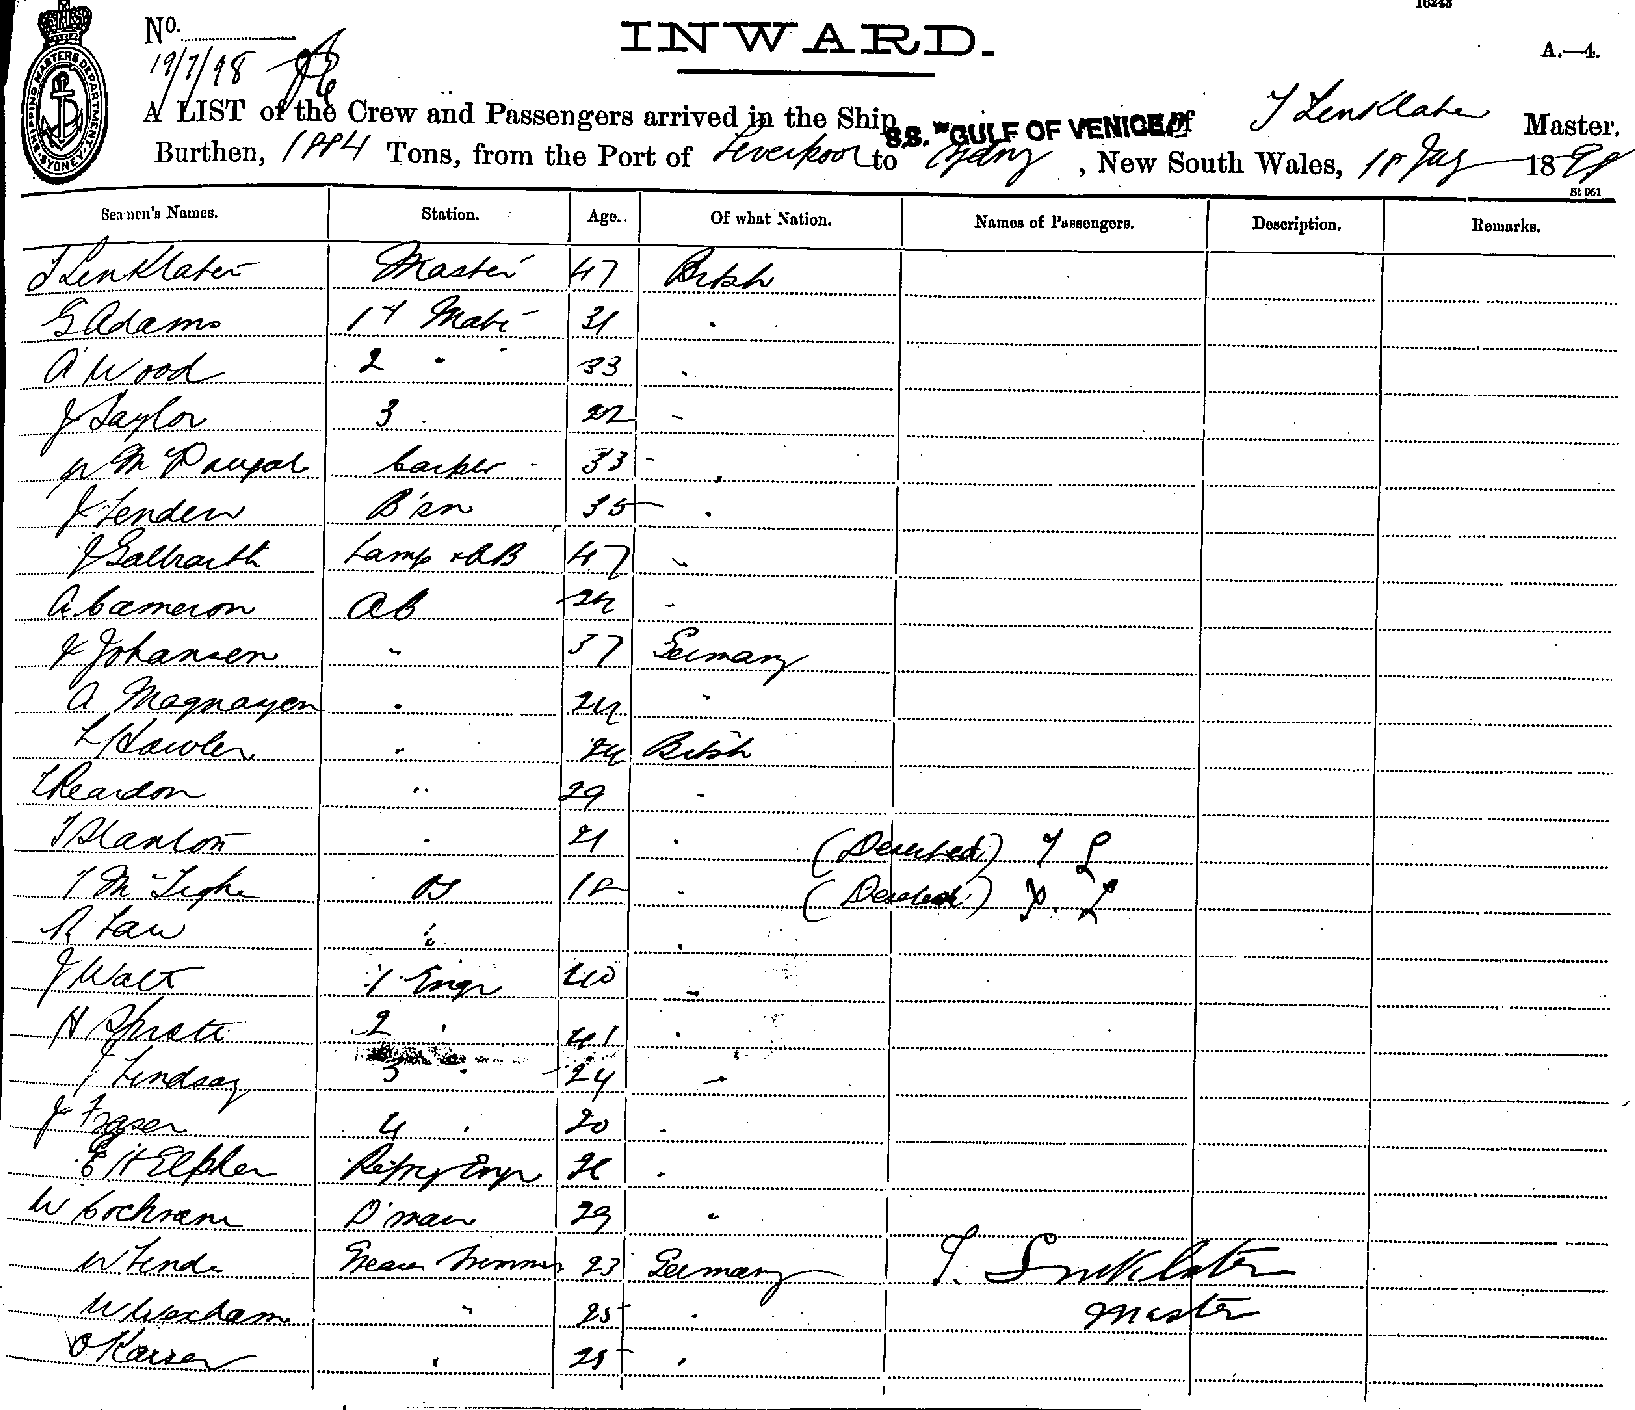 16243
No.
INWARD.
A.—4.
19/7/98
SHIPPING MASTERS DEPARTMENT SYDNEY
A LIST of the Crew and Passengers arrived in the Ship S.S. "GULF OF VENICE" of T Linklater Master,
Burthen, 1884 Tons, from the Port of Liverpool to Sydney, New South Wales, 18 July 1898
St 961
Seamen's Names. Station. Age. Of what Nation. Names of Passengers. Description. Remarks.
T Linklater Master 47 British
G Adams 1st Mate 31 "
A Wood 2 " 33 "
J Taylor 3 " 22 "
33 "
B'sn 35 "
J Galbraith Lamp & AB 47 "
A Cameron AB 24 "
J Johansen " 37 Germany
A " 24 "
L " 24 British
T Reardon " 29 "
T Stanton " 21 " (Deserted) T L
T McTighe OS 18 " (Deserted) T. L
R Law " "
J Watt 1 Engr 40 "
H Spratt 2 " 41 "
J Lindsay 3 " 24 "
J Fraser 4 " 20 "
Refrig Engr "
W Cochrane D'man 29 "
W 23 Germany T. Linklater
W " 25 " Master
O " 25 "